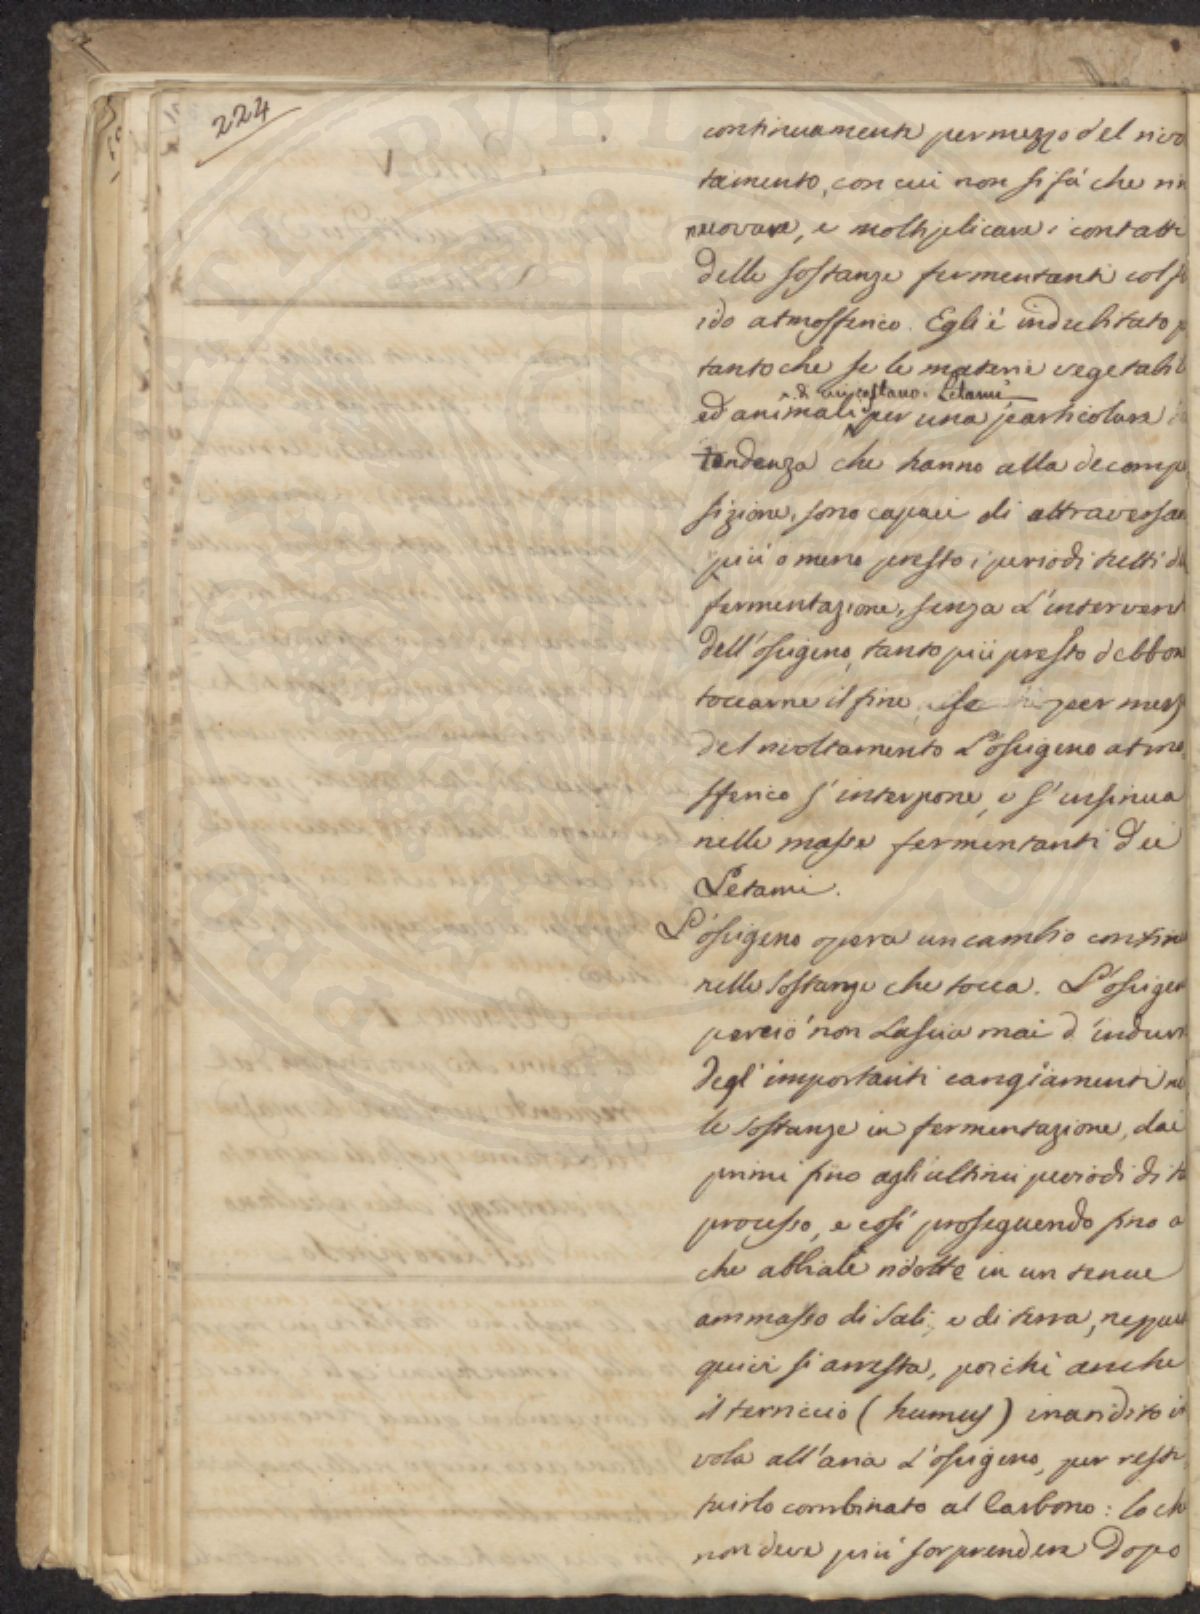 224
continuamente per mezzo del rivo
tamento, con cui non si fà che rin
nuovare, e moltiplicare i contatti
delle sostanze fermentanti col
ido atmosferico. Egli è indubitato p
tanto che se le materie vegetabili
di cui costano i Letami
ed animali per una particolare
tendenza che hanno alla decompo
sizione, sono capaci di attraversar
più o meno presto i periodi tutti d
fermentazione, senza l'interven
dell'ossigeno, tanto più presto debbon
toccarne il fine, se per mezz
del rivoltamento l'ossigeno atmo
sferico s'interpone, e s'insinua
nelle masse fermentanti dei
Letami.
L'ossigeno opera un cambio contin
nelle sostanze che tocca. L'ossigen
perciò non lascia mai d'indurr
degl'importanti cangiamenti ne
le sostanze in fermentazione, dai
primi fino agli ultimi periodi di ta
processo, e così proseguendo fino a
che abbiale ridotte in un tenue
ammasso di sali, e di terra, neppur
quivi si arresta, poichè anche
il terriccio (humus) inaridito in
vola all'aria l'ossigeno, per resti
tuirlo combinato al Carbono: lo che
non deve più sorprendere dopo